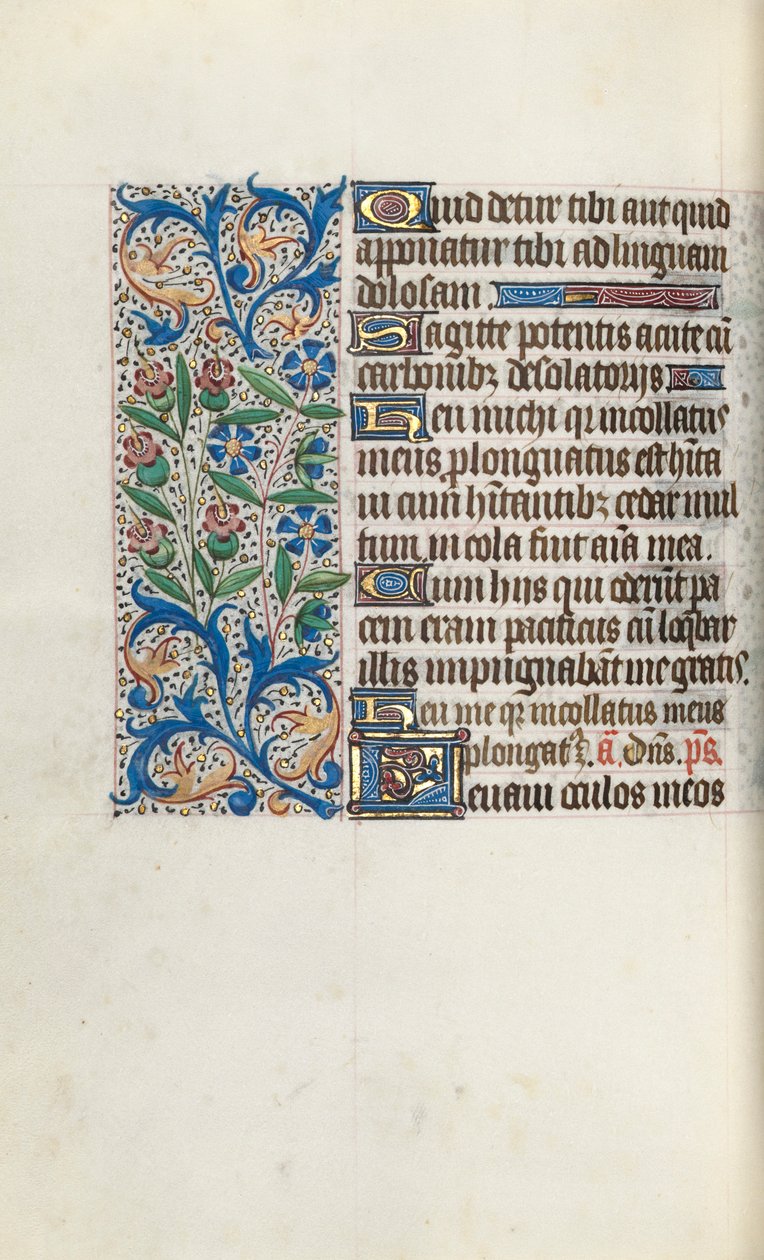 Quid detur tibi aut quid
apponatur tibi ad linguam
dolosam.
Sagitte potentis acute cū
carbonibꝫ desolatorijs
Heu michi qꝛ incolatus
meus ꝓlonguatus est hĩta
ui cum hĩtantibꝫ cedar mul
tum incola fuit aĩa mea.
Cum hiis qui oderũt pa
cem eram pacificus cũ loq̃bar
illis impugnabãt me gratis.
Heu me qꝛ incollatus meus
ꝓlongatꝰ ꝫ. ã. Dñs. p̃s.
Leuaui oculos meos